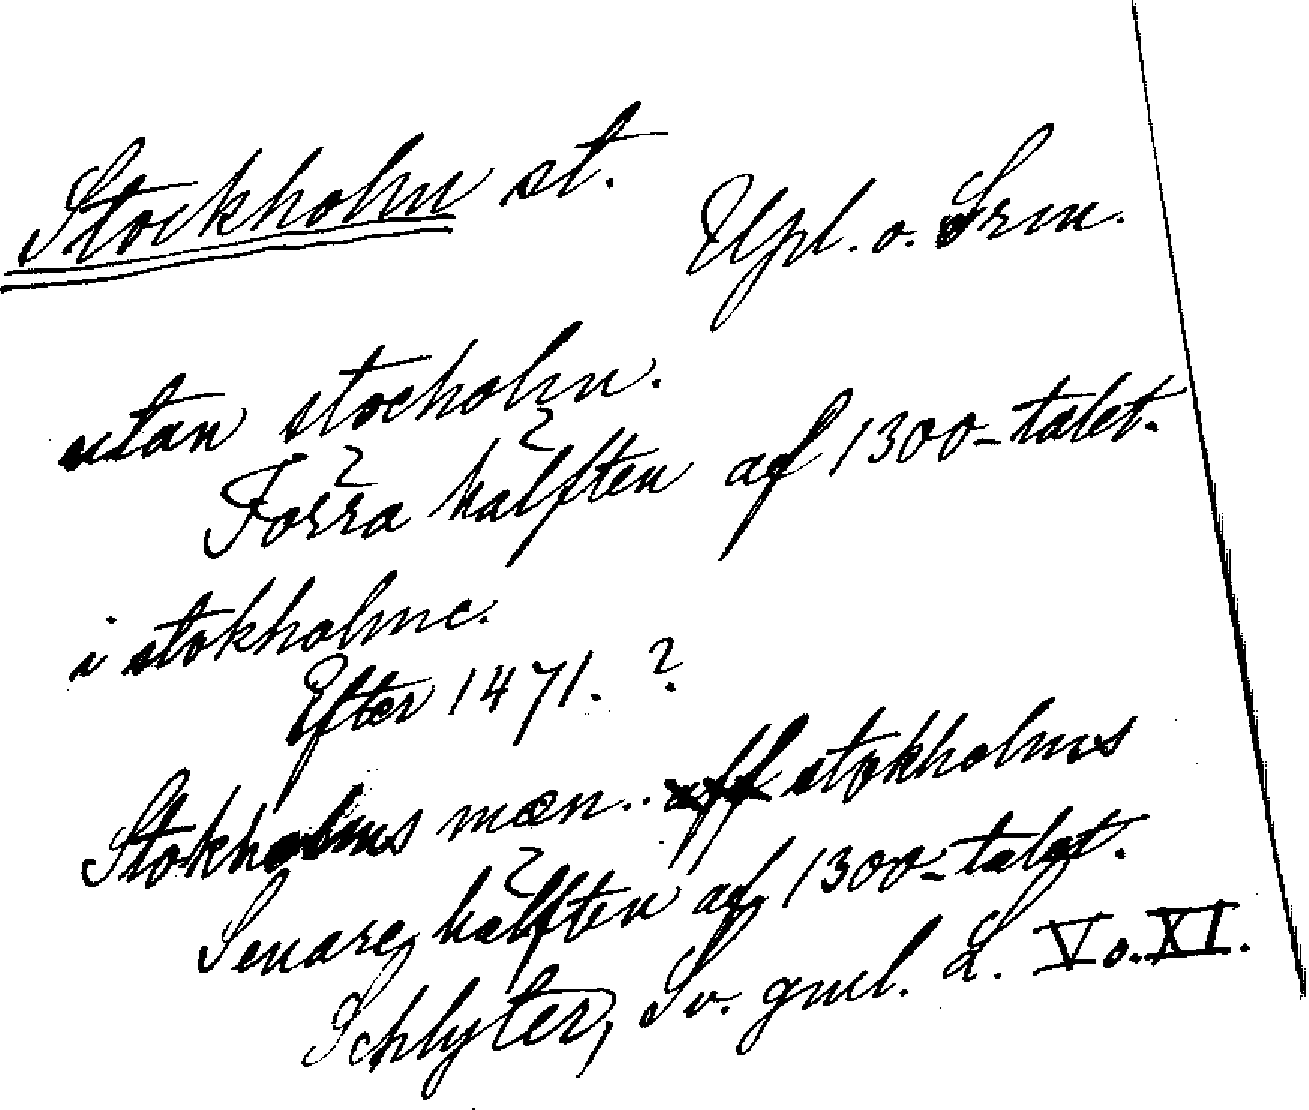 Stockholm st. Upl. o. Srm.
utan stocholm.
Förra hälften af 1300-talet.
i stokholme.
Efter 1471. ?
Stokholms mæn.. aff stokholms
Senare hälften af 1300-talet.
Schlyter, Sv. gml. L. V o. XI.